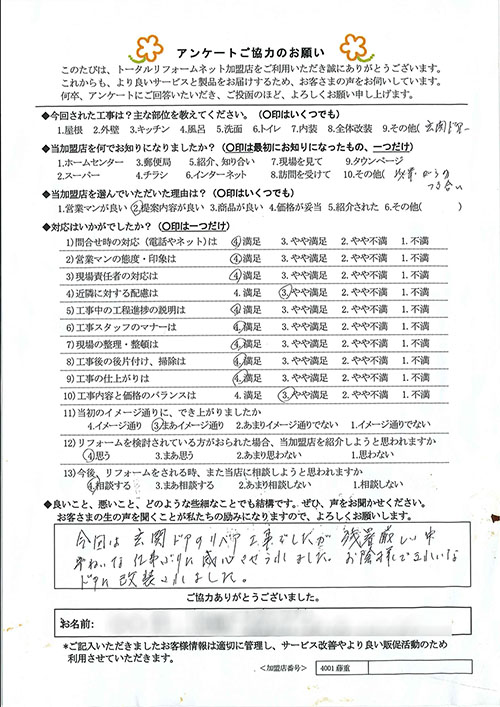 アンケートご協力のお願い
このたびは、トータルリフォームネット加盟店をご利用いただき誠にありがとうございます。
これからも、より良いサービスと製品をお届けするため、お客さまの声をお伺いしています。
何卒、アンケートにご回答いただいた、ご投函のほど、よろしくお願い申し上げます。
◆今回された工事は?主な部位を教えてください。(〇印はいくつでも)
1.屋根 2.外壁 3.キッチン 4.風呂 5.洗面 6.トイレ 7.内装 8.全体改装 9.その他(玄関ドアー
◆当加盟店を何でお知りになりましたか?(〇印は最初にお知りになったもの、一つだけ)
1.ホームセンター 3.郵便局 5.紹介、知り合い 7.現場を見て 9.タウンページ
2.スーパー 4.チラシ 6.インターネット 8.訪問を受けて 10.その他(
◆当加盟店を選んでいただいた理由は?(〇印はいくつでも)
1.営業マンが良い 2.提案内容が良い 3.商品が良い 4.価格が妥当 5.紹介された 6.その他( )
◆対応はいかがでしたか?(〇印は一つだけ)
1)問合せ時の対応(電話やネット)は 4.満足 3.やや満足 2.やや不満 1.不満
2)営業マンの態度・印象は 4.満足 3.やや満足 2.やや不満 1.不満
3)現場責任者の対応は 4.満足 3.やや満足 2.やや不満 1.不満
4)近隣に対する配慮は 4.満足 3.やや満足 2.やや不満 1.不満
5)工事中の工程進捗の説明は 4.満足 3.やや満足 2.やや不満 1.不満
6)工事スタッフのマナーは 4.満足 3.やや満足 2.やや不満 1.不満
7)現場の整理・整頓は 4.満足 3.やや満足 2.やや不満 1.不満
8)工事後の後片付け、掃除は 4.満足 3.やや満足 2.やや不満 1.不満
9)工事の仕上がりは 4.満足 3.やや満足 2.やや不満 1.不満
10)工事内容と価格のバランスは 4.満足 3.やや満足 2.やや不満 1.不満
11)当初のイメージ通りに、でき上がりましたか
4.イメージ通り 3.まあイメージ通り 2.あまりイメージ通りでない 1.イメージ通りでない
12)リフォームを検討されている方がおられた場合、当加盟店を紹介しようと思われますか
4.思う 3.まあ思う 2.あまり思わない 1.思わない
13)今後、リフォームをされる時、また当店に相談しようと思われますか
4.相談する 3.まあ相談する 2.あまり相談しない 1.相談しない
◆良いこと、悪いこと、どのような些細なことでも結構です。ぜひ、声をお聞かせください。
お客さまの生の声を聞くことが私たちの励みになりますので、よろしくお願いします。
今回は玄関ドアのリペア工事でしたが 残暑厳しい中
ていねいな仕事ぶりに感心させられました。お陰様できれいな
ドアに改装されました。
ご協力ありがとうございました。
お名前:
*ご記入いただきましたお客様情報は適切に管理し、サービス改善やより良い販促活動のため
利用させていただきます。
<加盟店番号> 4001藤重